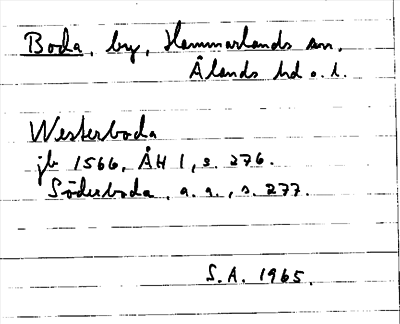 Boda, by, Hammarlands sn.
Ålands hd o. l.
Westerboda
jb 1566, ÅH 1, s. 276.
Söderboda, a. a., s. 277.
S.A. 1965.